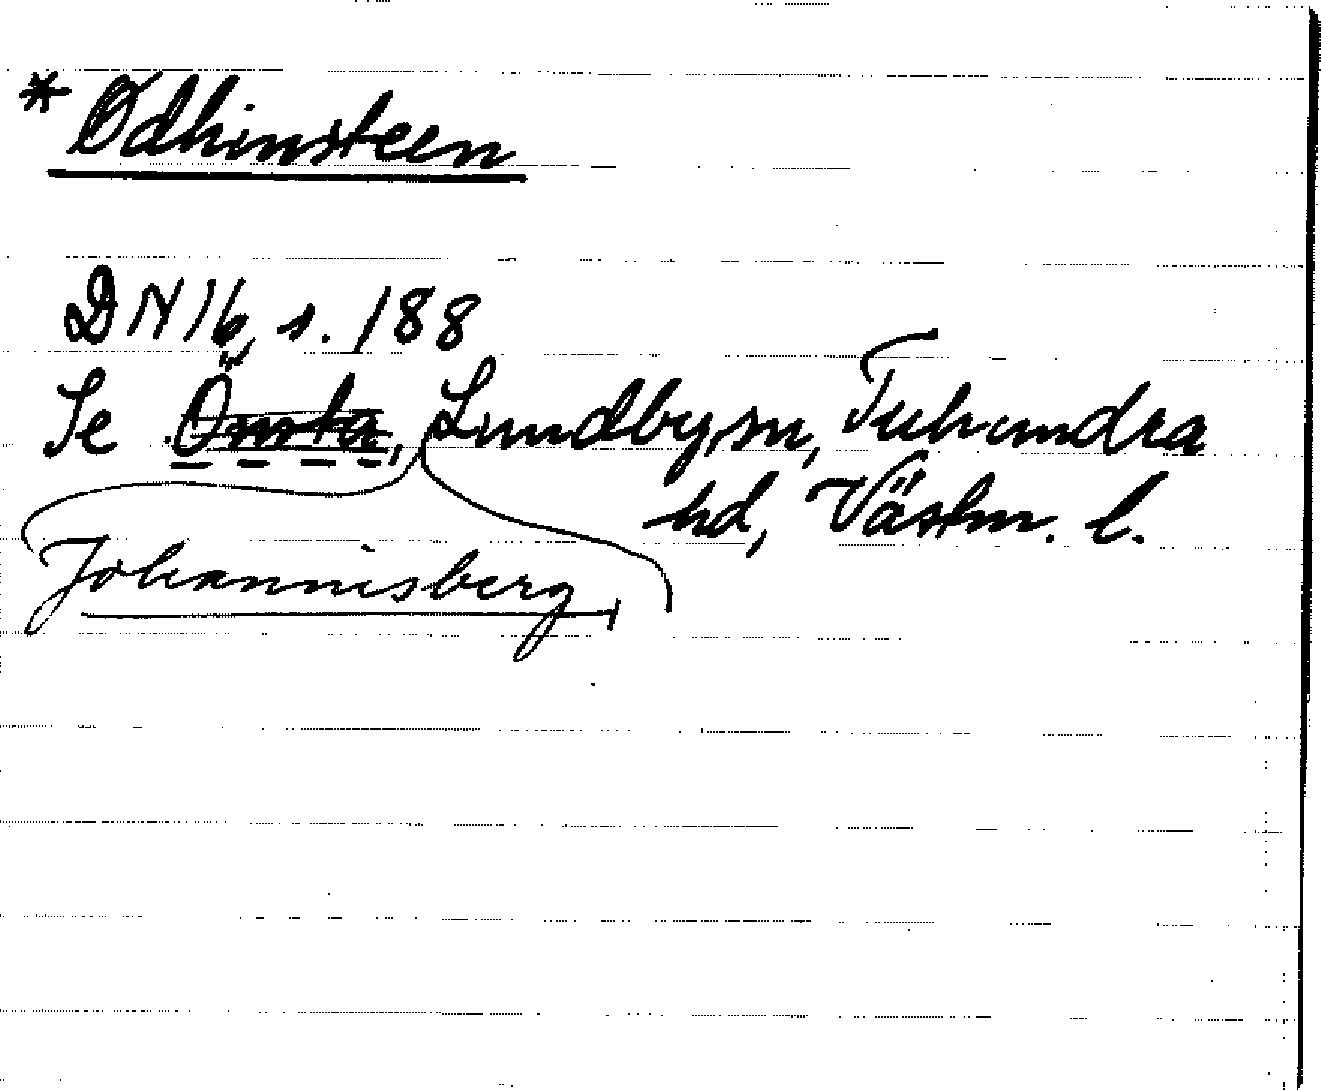 * Odhinsteen
DN 16, s. 188
Se Önsta, Lundby sn, Tuhundra
hd, Västm. l.
Johannisberg